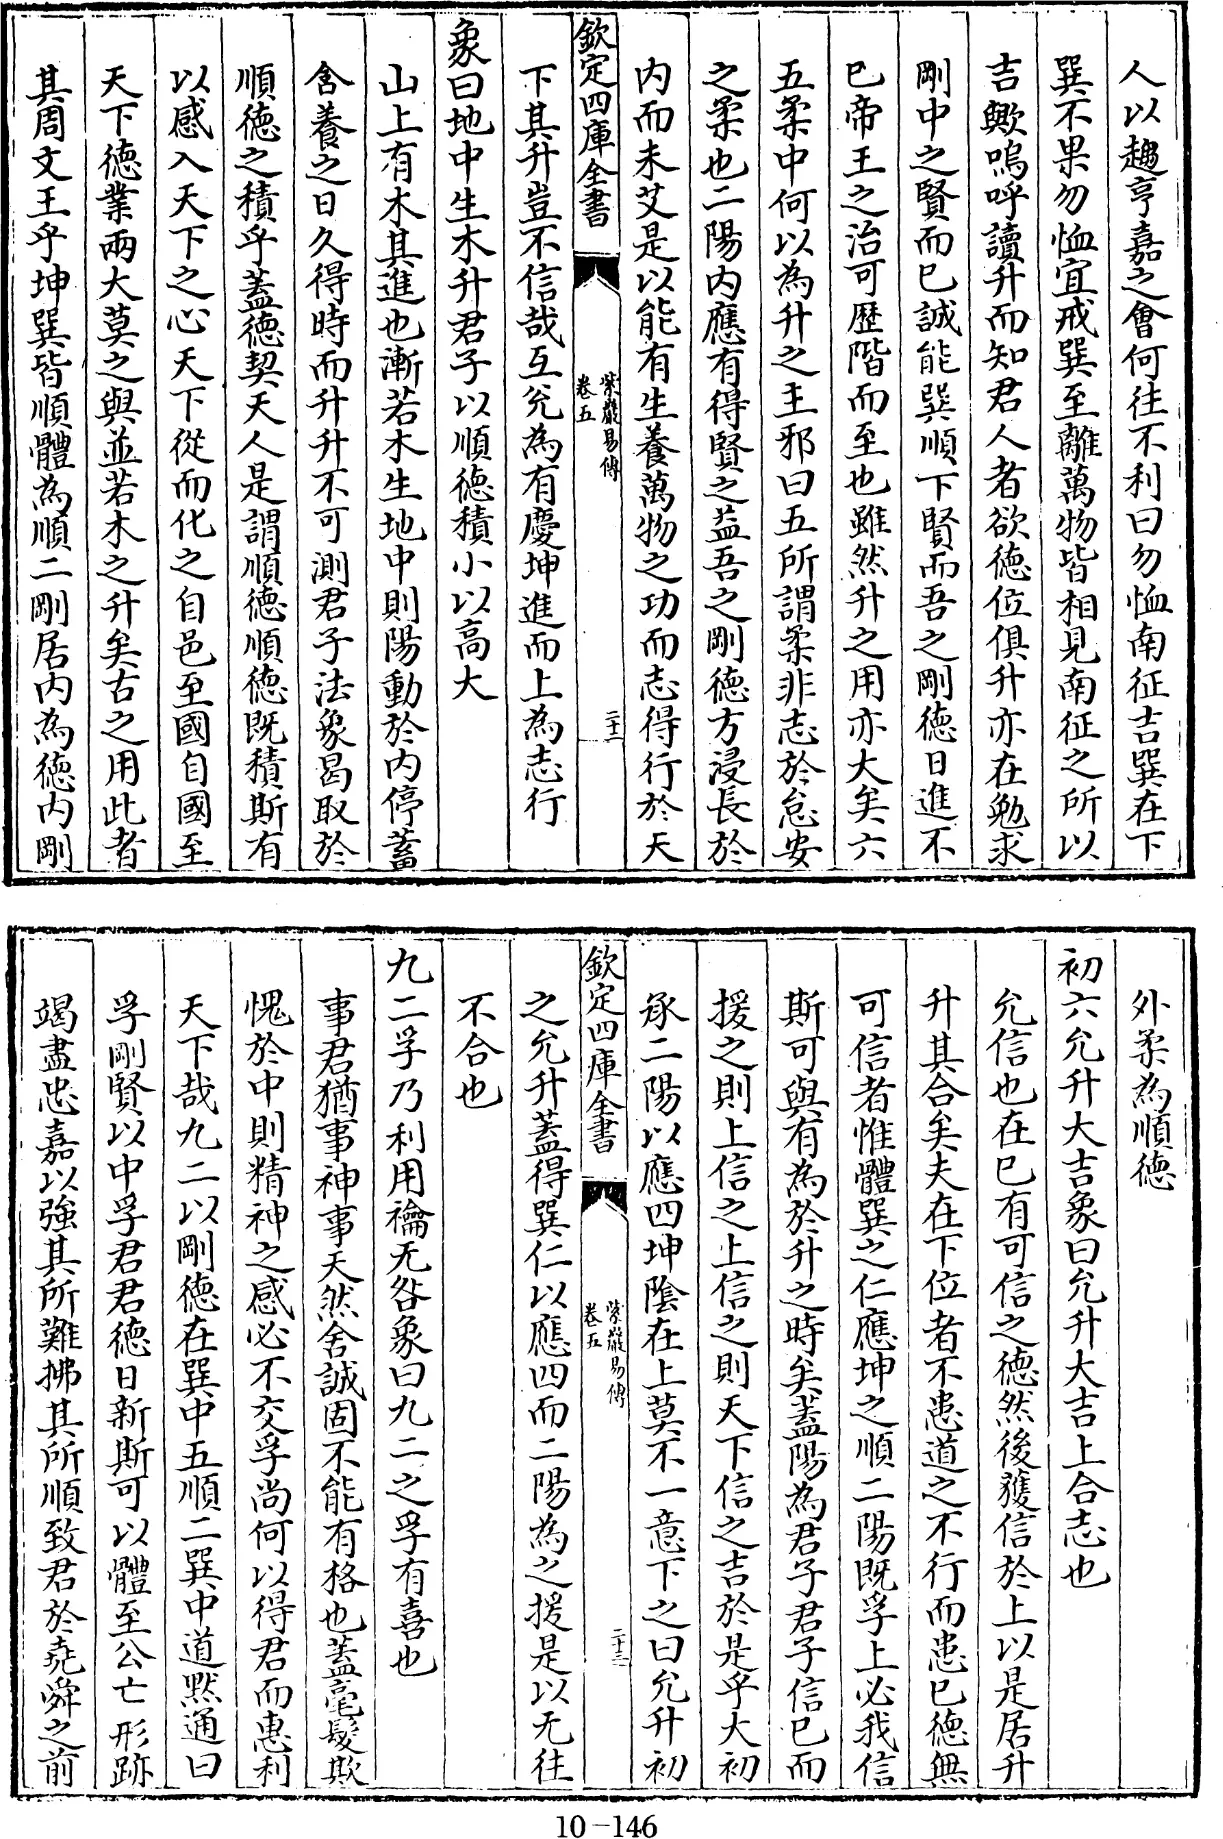 人以趨亨嘉之會何往不利曰勿恤南征吉巽在下
巽不果勿恤宜戒巽至離萬物皆相見南征之所以
吉歟嗚呼讀升而知君人者欲德位俱升亦在勉求
剛中之賢而已誠能巽順下賢而吾之剛德日進不
已帝王之治可歷階而至也雖然升之用亦大矣六
五柔中何以為升之主邪曰五所謂柔非志於怠安
之柔也二陽内應有得賢之益吾之剛德方浸長於
内而未艾是以能有生養萬物之功而志得行於天
欽定四庫全書
紫巖易傳
卷五
二十二
下其升豈不信哉互兊為有慶坤進而上為志行
象曰地中生木升君子以順德積小以高大
山上有木其進也漸若木生地中則陽動於内停蓄
含養之日久得時而升升不可測君子法象曷取於
順德之積乎蓋德契天人是謂順德順德既積斯有
以感入天下之心天下從而化之自邑至國自國至
天下德業兩大莫之與並若木之升矣古之用此者
其周文王乎坤巽皆順體為順二剛居内為德内剛
外柔為順德
初六允升大吉象曰允升大吉上合志也
允信也在已有可信之德然後獲信於上以是居升
升其合矣夫在下位者不患道之不行而患已德無
可信者惟體巽之仁應坤之順二陽既孚上必我信
斯可與有為於升之時矣蓋陽為君子君子信已而
援之則上信之上信之則天下信之吉於是乎大初
承二陽以應四坤陰在上莫不一意下之曰允升初
欽定四庫全書
紫巖易傳
卷五
二十三
之允升蓋得巽仁以應四而二陽為之援是以无往
不合也
九二孚乃利用禴无咎象曰九二之孚有喜也
事君猶事神事天然舍誠固不能有格也蓋毫髮欺
愧於中則精神之感必不交孚尚何以得君而惠利
天下哉九二以剛德在巽中五順二巽中道黙通曰
孚剛賢以中孚君君德日新斯可以體至公亡形跡
竭盡忠嘉以強其所難拂其所順致君於堯舜之前
10-146